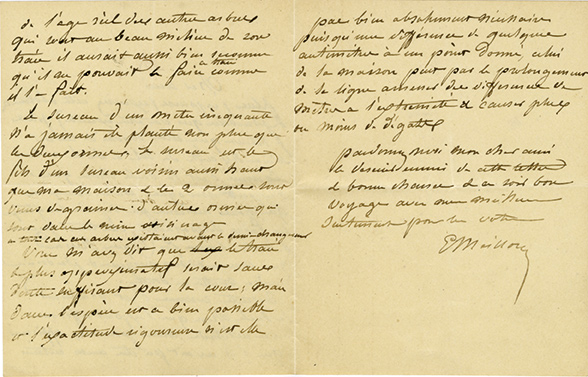 de l'age réel des autres arbres
qui sont au beau milieu de son
tracé il aurait aussi bien reconnu
qu'il ne pouvait le faire comme
il l'a fait.
Le sureau d'un mètre cinquante
n'a jamais été planté non plus que
les deux ormes, le sureau est le
fils d'un sureau voisin aussi haut
que ma maison & les 2 ormes sont
venus de graines d'autres ormes qui
sont dans le voisinage
Vous m'avez dit que le tracé
le plus serait sans
doute en visant pour la cour; mais
dans l'espèce est-ce bien possible
et l'exactitude rigoureuse n'est elle
pas bien absolument nécessaire
puisqu'une différence de quelques
centimètres à un point donné, celui
de la maison peut par le prolongement
de la ligne amener des différences de
mètres à l'extrémité & causer plus
ou moins de dégats
pardonnez moi mon cher ami
le décousu de cette lettre
& bonne chance & ce soir bon
voyage avec une meilleure
pour la votre